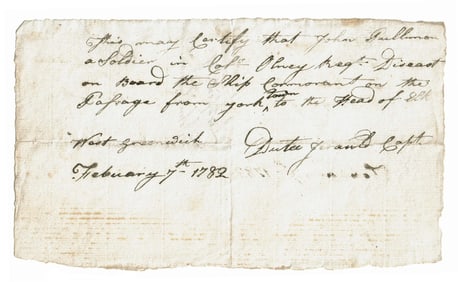 This may Certify that John Tullmon
a Soldier in Col.º Olney Regt. Diseast
on Board the Ship Cormorant on the
Passage from york town to the Head of Elk
West Greenwich Dutee Jerauld Capt.
Febuary 7th 1782